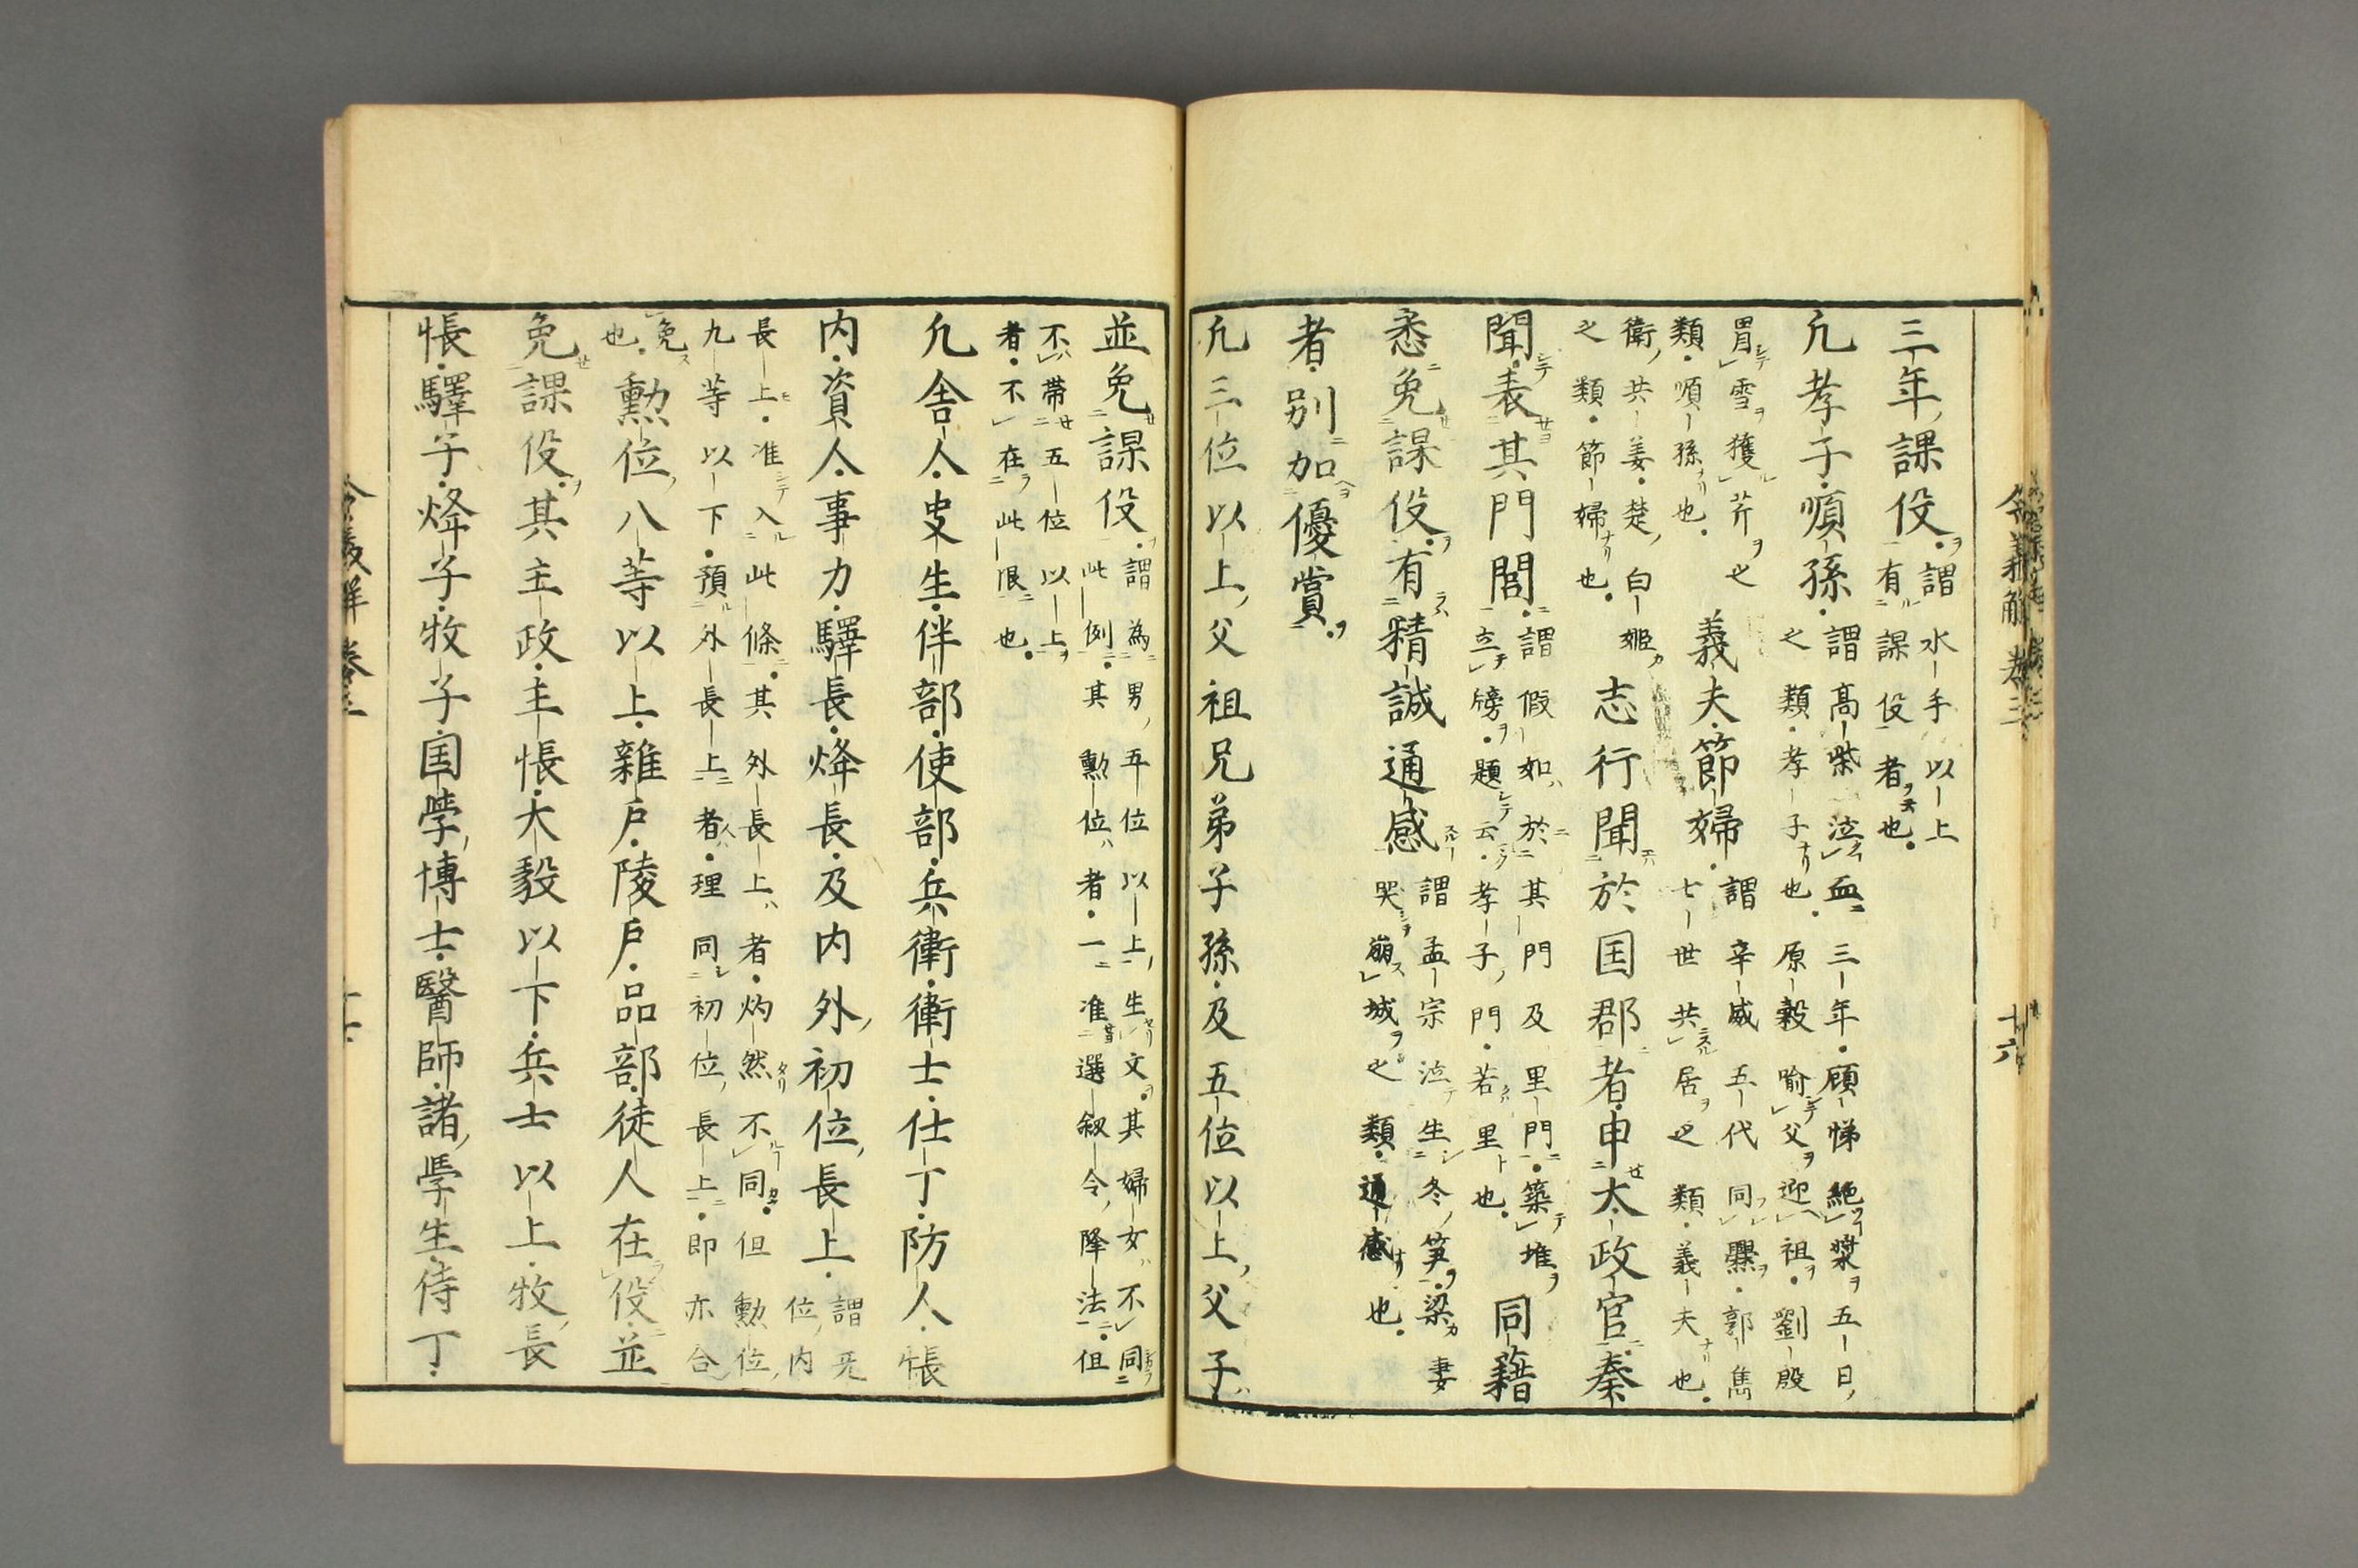 三年課役謂水手以上
有課役者也
凢孝子順孫謂高柴泣血三年顧悌絶漿五日
之類孝子也原穀喻父迎祖劉殷
冐雪獲芹也
類順孫也義夫節婦謂辛威五代同爨郭雋
七世共居之類義夫也
衛共姜楚白姬
之類節婦也志行聞於国郡者申太政官奏
聞表其門閭謂假如於其門及里門築堆
立牓題云孝子門若里也同籍
悉免課役有精誠通感謂孟宗泣生冬笋梁妻
哭崩城之類通感也
者別加優賞
凢三位以上父祖兄弟子孫及五位以上父子
令義解 卷三 十六
並免課役謂為男五位以上生文其婦女不同
此例其勲位者一准選叙令降法但
不帶五位以上
者不在此限也
凢舎人史生伴部使部兵衛衛士仕丁防人帳
内資人事力驛長烽長及内外初位長上謂无
位内
長上准入此條其外長上者灼然不同但勲位
九等以下預外長上者理同初位長上即亦合
免
也勲位八等以上雜戸陵戸品部徒人在役並
免課役其主政主帳大毅以下兵士以上牧長
帳驛子烽子牧子国學博士醫師諸學生侍丁
令義解 卷三